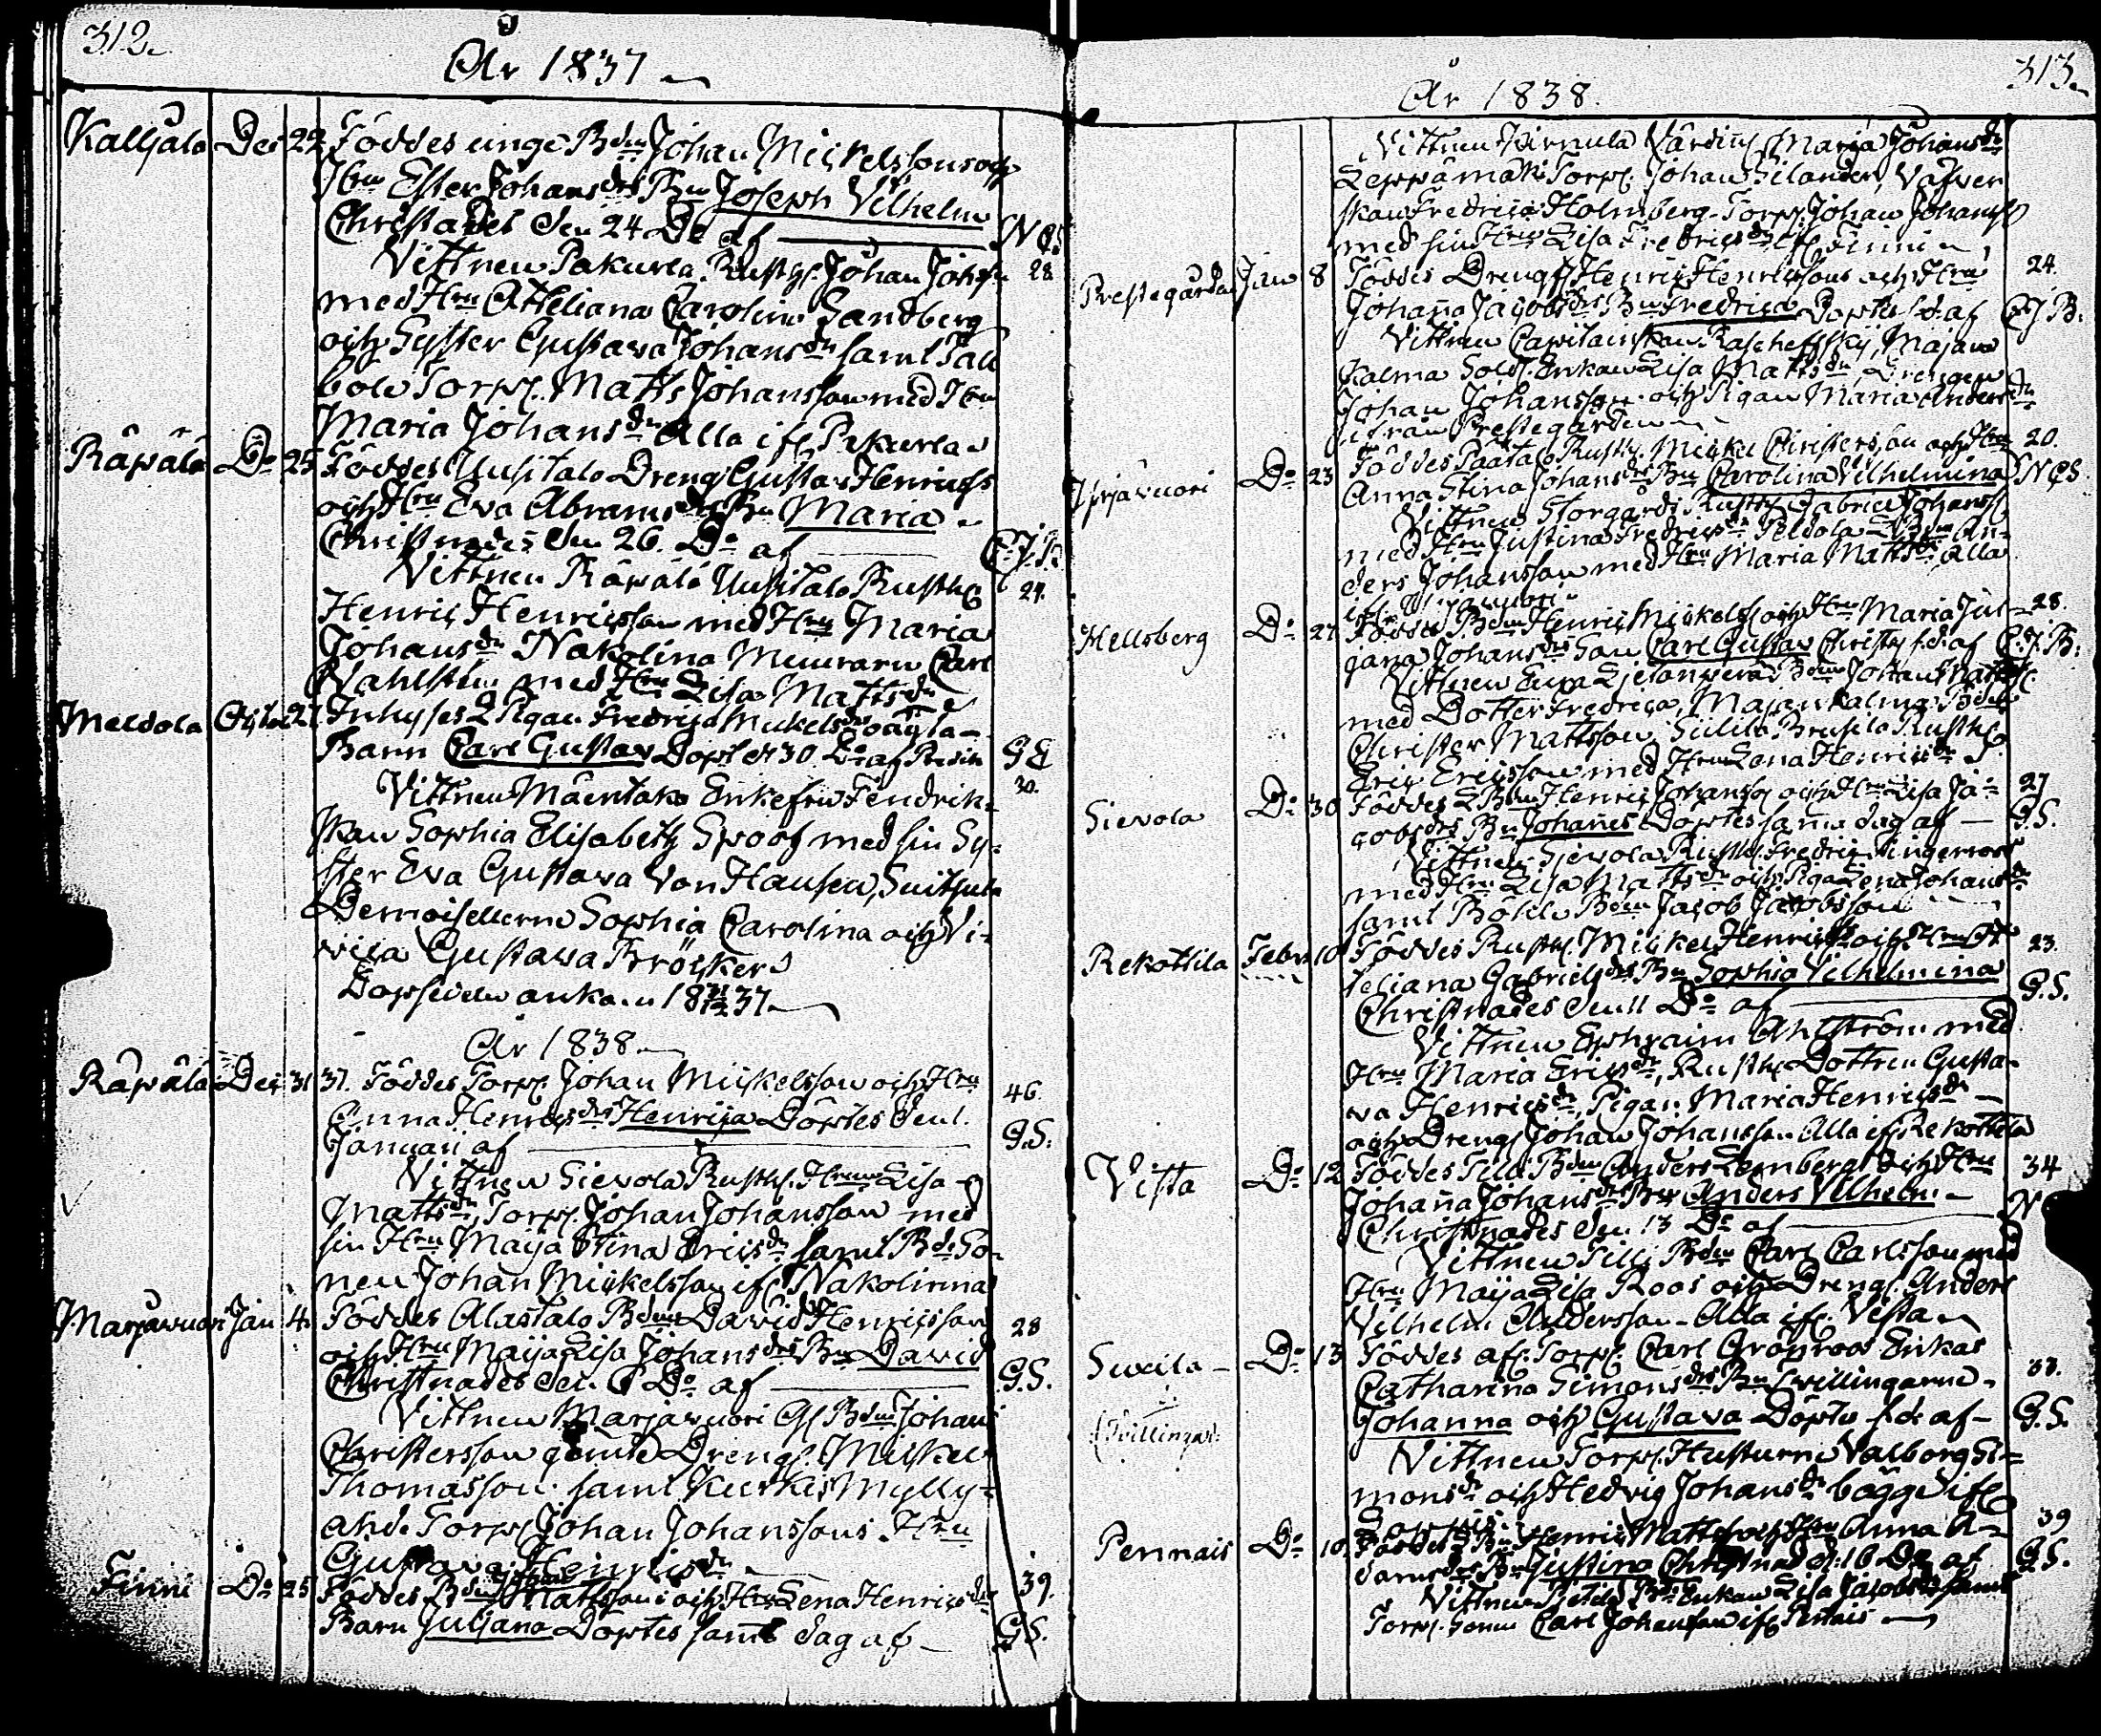 312.
År 1837
Kalljala Dec 22 Föddes unge Bdn Johan Mickelssons och
Hru Ester Johans drs Bn Joseph Vilhelm
Christnades den 24 Do af N GS
Vittnen Pakurla Rusth Johan Johs 28
med Hru Atteliana Carolina Sandberg
och Syster Gustava Johansdr samt
Torp. Matts Johansson med Hru
Maria Johansdr Alla if. Pakurla
Räpälä Do 25 Föddes Uusitalo Dreng Gustav Henricss
och Hru Eva Abramsdrs Bn Maria
Christnades den 26. Do af C.J.B.
Vittnen Räpälä Uusitalo Rusth 24.
Henric Henricsson med Hru Maria
Johansdr Nakolina Muuraren Carl
Vahlsten med Hru Lisa Mattsdr
Meldola 27. Pigan Fredrica Mickelsdrs oägta
Barn Carl Gustav Döpt d 30. Do af GE
30.
Vittnen Mäentaka Enkefru Fendrik-
skan Sophia Elisabeth Spoof med sin Sy-
ster Eva Gustava Von Hausen,
Demoisellerne Sophia Carolina och
Gustava Bröcker
Dopsedeln ankom 18 31/12 37.
År 1838
Räpälä Dec 31 37. Föddes Torp. Johan Mickelsson och Hru 46.
Anna Henricsdrs Henrica Döptes den 1.
Januari af G.S.
Vittnen Sievola Rusth. Hrun Lisa
Mattsdr, Torp. Johan Johansson med
sin Hru Maija Stina Ericsdr samt Bde So-
nen Johan Mickelsson if. Nakolinna
Marjavuori Jan 4. Föddes Alastalo Bdn David Henricsson 28
och Hru Maija Lisa Johansdrs Bn David
Christnades den 6 Do af G.S.
Vittnen Marjavuori Bdn Johan
Christersson Dreng. Mickel
Thomasson samt Kurkis Mylly-
Torp. Johan Johanssons Hru
Gustava Henricsdr
Finni Do 25 Föddes Bdn Johan Mattssons och Hru Lena Henricsdrs 39.
Barn Juljana Döptes samma dag af G.S.
313.
År 1838.
Vittnen Värdin Maria Johansdr
Leppämäki Torp. Johan Silander, Väfver
skan Fredrica Holmberg Torp. Johan Johanss
med sin Hru Lisa Fredricsdr if. Finni
Prestegården Jan 8 Föddes Dreng Henric Henricssons och Hru 24.
Johanna Jacobsdrs Bn Fredrica Döptes s.d. af C.J.B.
Vittnen Capitainskan Rascheffskij, Majan
Kalma Sold. Enkan Lisa Mattsdr, Drengen
Johan Johansson och Pigan Maria Andersdr
ifrån Prestegården
Yrjävuori Do 23 Föddes Paatalo Rusth. Mickel Christersson och Hru 20.
Anna Stina Johansdrs Bn Carolina Vilhelmina N GS.
Vittnen Storgårds Rusth Gabriel Johanss.
med Hru Justina Fredricsdr Peldola Bdn An-
ders Johansson med Hru Maria Mattsdr alla
if. Yrjävuori
Hellsberg Do 27. Föddes Bdn Henric Mickels och Hru Maria Jul- 28.
jana Johansdrs Son Carl Gustav Christn. s.d. af C.J.B.
Vittnen Bdn Johan Mattss.
med Dotter Fredrica, Majan Kalma Bdn
Christer Mattsson, Rusth
Eric Ericsson med Hru Lena Henricsdr
Sievola Do 30 Föddes Bdn Henric Johanss. och Hru Lisa Ja- 27
cobsdrs Bn Johannes Döptes samma dag af G.S.
Vittnen Sievola Rusth Fredric Ringerroos
med Hru Lisa Mattsdr och Piga Lena Johansdr
samt Böhle Bdn Jacob Jacobsson
Rekottila Febr 10 Föddes Rusth. Mickel Henricss och Hru At- 23.
teliana Gabrielsdrs Bn Sophia Vilhelmina
Christnades den 11 Do af G.S.
Vittnen Ephraim Ahlström med
Hru Maria Ericsdr, Rusth Dottren Gusta-
va Henricsdr, Pigan Maria Henricsdr
och Dreng Johan Johansson Alla if. Rekottila
Vista Do 12 Föddes Tilli Bdn Anders Lemberg och Hru 34
Johanna Johansdrs Bn Anders Vilhelm
Christnades den 13 Do af N
Vittnen Tilli Bdn Carl Carlsson med
Hru Maija Lisa Roos och Dreng. Anders
Vilhelm Andersson Alla if. Vista
Do 13 Föddes afl. Torp. Carl Grönroos Enkas
Catharina Simonsdrs Bn Tvillingarne 33.
Tvillingar Johanna och Gustava Döptes s.d. af G.S.
Vittnen Torp. Hustrurne Valborg Si-
monsdr och Hedvig Johansdr bägge if.
Pennais Do 10. Föddes Bn Henric Matts och Hru Anna A- 39
damsdrs Bn Justina Christnad d. 16 Do af G.S.
Vittnen Bds Enkan Lisa Jacobsdr samt
Torp. Sonen Carl Johansson if. Pennais